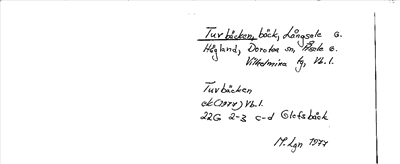 Turbäcken, bäck, Långsele g.
Högland, Dorotea sn, Åsele s.
Vilhelmina tg, Vb.l.
Turbäcken
ek(1977) Vb.l.
22G 2-3 c-d Olofsbäck
M. Lgn 1977